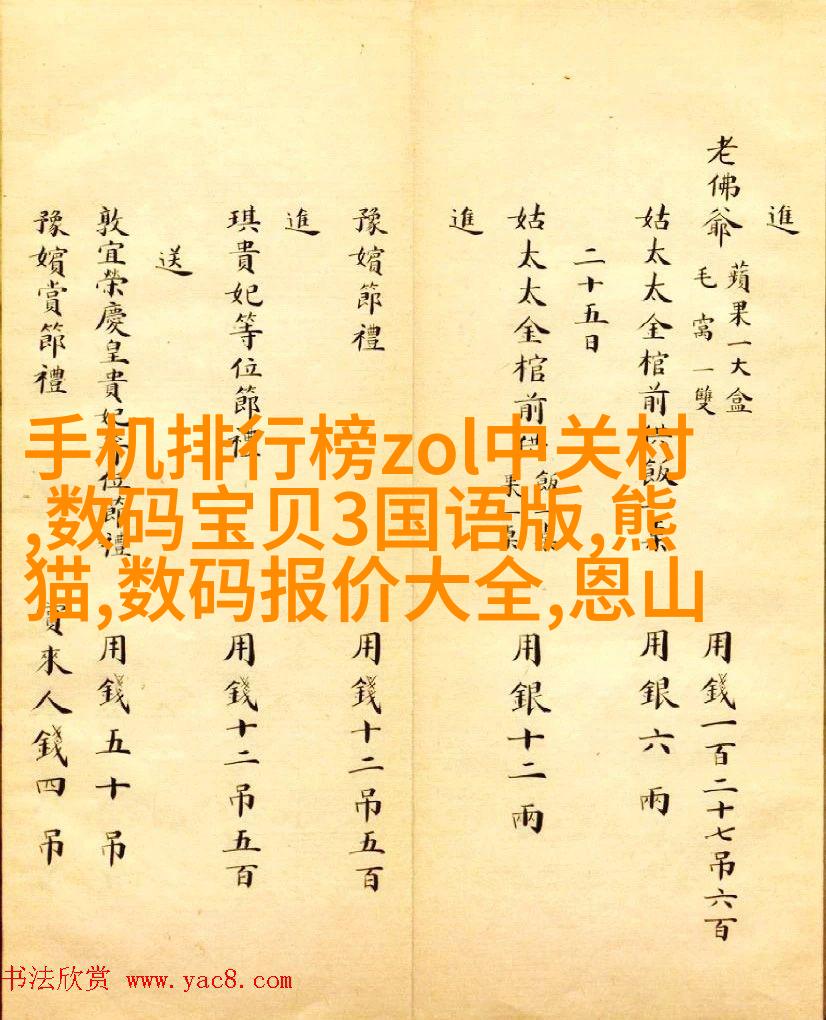 進
老佛爺 蘋果一大盒 毛窩一雙 用錢一百二十七吊六百
姑太太金棺前供飯一桌 用銀六兩
二十五日
姑太太金棺前供 飯一桌 果一桌 用銀十二兩
進
豫嬪節禮 用錢十二吊五百
進
琪貴妃等位節禮 用錢十二吊五百
送
敦宜榮慶皇貴妃等位節禮 用錢五十吊
豫嬪賞節禮 賞來人錢四吊
手机排行榜zol中关村
,数码宝贝3国语版,熊
猫,数码报价大全,恩山
书法欣赏 www.yac8.com